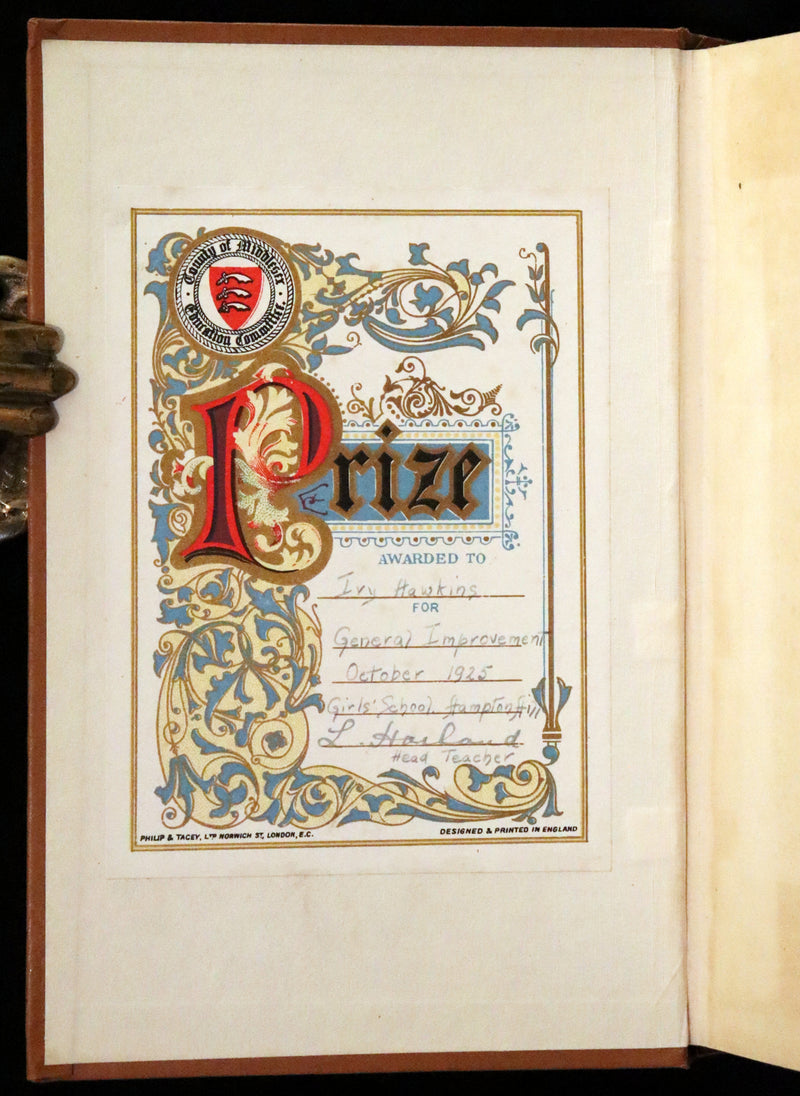 County of Middlesex
Education Committee.
Prize
AWARDED TO
Ivy Hawkins
FOR
General Improvement
October 1925
Girls' School, Hampton Hill
L. Harland
Head Teacher
PHILIP & TACEY, LTD NORWICH ST, LONDON, E.C.
DESIGNED & PRINTED IN ENGLAND